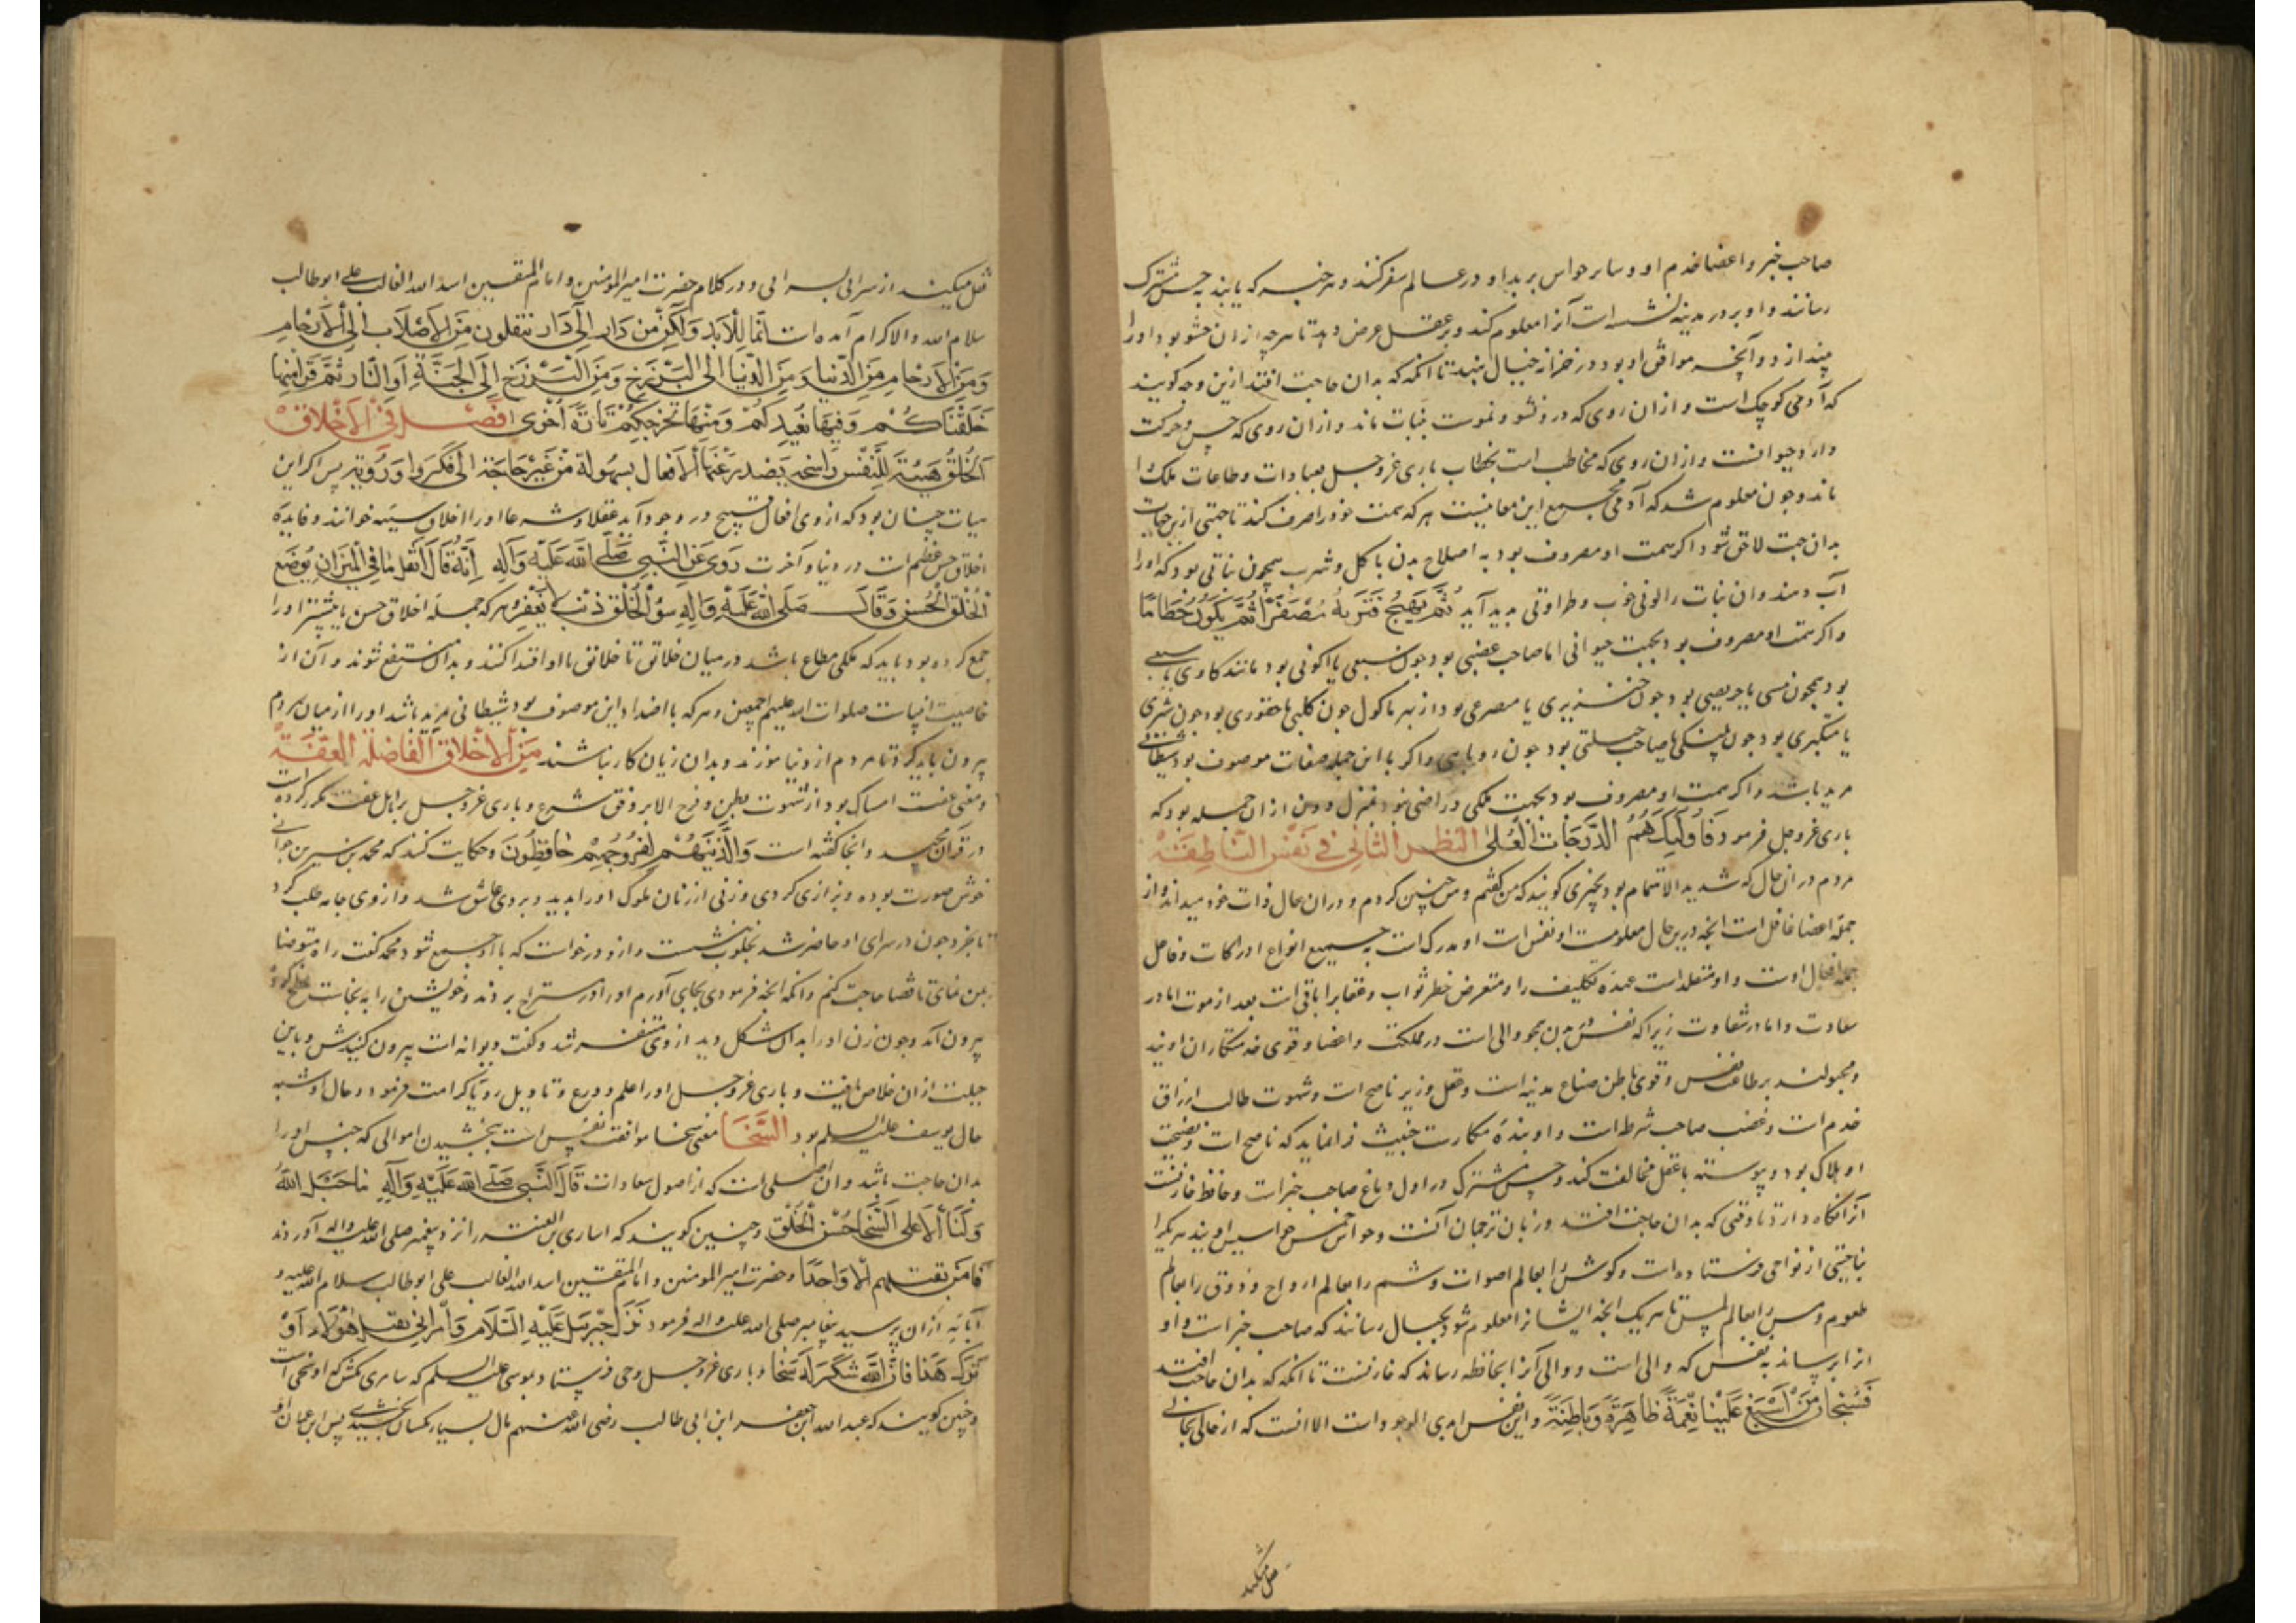 صاحب خبر و اعضا خدم او و سایر حواس برید او در عالم سفر کنند و هر خبر که یابند به حس مشترک
رسانند و او بر در مدینه نشسته است آنرا معلوم کند و بر عقل عرض دهد تا هر چه از ان حشو بود او را
بیندازد و آنچه موافق او بود در خزانه خیال بنهد تا آنگه که بدان حاجت افتد ازین وجه کویند
که آدمی کوچک است و ازان روی که در و نشو و نموست بنبات ماند و ازان روی که حس و حرکت
دارد حیوانست و ازان روی که مخاطب است بخطاب باری عز و جل بعبادات و طاعات ملک را
ماند و چون معلوم شد که آدمی مجمع این معانیست هر که همت خود را صرف کند تا جهتی ازین جهات
بدان جهت لاحق شود اکر همت او مصروف بود به اصلاح بدن باکل و شرب همچون نباتی بود که او را
آب دهند و ان نبات را لونی خوب و طراوتی پدید آید ثُمَّ يَهِيجُ فَتَرَيهُ مُصْفَرًّا ثُمَّ يَكُونُ حُطَامًا
و اکر همت او مصروف بود بجهت حیوانی اما صاحب غضبی بود چون سبعی یا اکولی بود مانند کاوی یا
بود همچون یا حریصی بود چون خنزیری یا بود از بهر ماکول چون کلبی یا حقودی بود چون شتری
یا متکبری بود چون پلنکی یا صاحب حیلتی بود چون روباهی و اکر با این جمله صفات موصوف بود شیطانی
مرید باشد و اکر همت او مصروف بود بجهت ملکی و راضی نبود بمنزل دون از ان جمله بود که
باری عز و جل فرمود فَأُولَئِكَ لَهُمُ الدَّرَجَاتُ الْعُلَى النظر الثانی فی نفس الناطقة
مردم در ان حال که شدید الاهتمام بود بچیزی کویند که من کفتم و من چنین کردم و در ان حال ذات خود میداند و از
جمله اعضا غافل است آنچه درین حال معلومست او نفس است او مدرک است به جمیع انواع ادراکات و فاعل
جمله افعال اوست و او متقلد است عهده تکلیف را و متعرض خطر ثواب و عقاب را باقی است بعد از موت اما در
سعادت و اما در شقاوت زیرا که نفس در بدن همچو والی است در مملکت و اعضا و قوی خدمتکاران اویند
و مجبولند بر طاعت نفس و قوی باطن صناع مدینه است و عقل وزیر ناصح است و شهوت طالب ارزاق
خدم است و غضب صاحب شرط است و او بنده مکارست خبیث فرا نماید که ناصح است و نصیحت
او هلاک بود و پیوسته با عقل مخالفت کند و حس مشترک در اول دماغ صاحب خبر است و حافظ خازنست
آنرا نگاه دارد تا وقتی که بدان حاجت افتد و زبان ترجمان آنست و حواس خمس جواسیس اویند هر یک را
بناحیتی از نواحی فرستاده است و کوش را بعالم اصوات و شم را بعالم ارواح و ذوق را بعالم
طعوم و مس را بعالم لمس تا هر یک آنچه ایشانرا معلوم شود بخیال رسانند که صاحب خبر است و او
انرا برساند به نفس که والی است و والی آنرا بحافظه رساند که خازنست تا آنگه که بدان حاجت افتد
فَسُبْحَانَ مَنْ أَسْبَغَ عَلَيْنَا نِعَمَهُ ظَاهِرَةً وَبَاطِنَةً و این نفس ابدی الوجود است الا آنست که از حالی بحالی
نقل میکند
نقل میکند از سرائی بسرائی و در کلام حضرت امیر المؤمنین و امام المتقین اسد الله الغالب علی ابوطالب
سلام الله و الاکرام آمده است انما للابد ولكن من دار الى دار تنتقلون من الاصلاب الى الارحام
ومن الارحام من الدنيا ومن الدنيا الى البرزخ ومن البرزخ الى الجنة او النار ثم قرأ منها
خلقناكم وفيها نعيدكم ومنها نخرجكم تارة اخرى فصل فی الاخلاق
الخلق هيئة للنفس راسخة يصدر عنها الافعال بسهولة من غير حاجة الى فكر ورؤية پس اکر این
هیات چنان بود که از وی افعال قبیح در وجود آید عقلا و شرعا او را اخلاق سیئه خوانند و فایده
اخلاق حسن عظیم است در دنیا و آخرت روی عن النبی صلى الله عليه وآله انه قال اثقل ما فی المیزان یوضع
الخلق الحسن وقال صلى الله عليه وآله سوء الخلق ذنب لا یغفر هر که جمله اخلاق حسن یا بیشتر او را
جمع کرده بود باید که ملکی مطاع باشد در میان خلائق تا خلائق با او اقتدا کنند و بدان منتفع شوند و آن از
خاصیت انبیاست صلوات الله علیهم اجمعین و هر که با اضداد این موصوف بود شیطانی مرید باشد او را از میان مردم
بیرون باید کرد تا مردم ازو نیاموزند و بدان زیان کار نباشند من الاخلاق الفاضلة العفة
و معنی عفت امساک بود از شهوت بطن و فرج الا بر وفق شرع و باری عز و جل بر اهل عفت مکرر کرده است
در قرآن مجید و انجا کفته است والذین هم لفروجهم حافظون و حکایت کنند که محمد بن سیرین جوانی
خوش صورت بوده و بزازی کردی و زنی از زنان ملوک او را بدید و بر وی عاشق شد و از وی جامه طلب کرد
تا بخرد چون در سرای او حاضر شد بخلوت نشست و ازو درخواست که با او جمع شود محمد کفت راه متوضا
بمن نمای تا قضا حاجت کنم و آنکه آنچه فرمودی بجای آورم او را در مستراح بردند و خویشتن را به نجاست
بیرون آمد و چون زن او را بدان شکل دید از وی متنفر شد و کفت دیوانه است بیرون کنیدش و باین
حیلت از ان خلاص یافت و باری عز و جل او را علم و ورع و تاویل رویا کرامت فرمود و حال او شبه
حال یوسف علیه السلم بود السخا معنی سخا موافقت نفس است ببخشیدن اموالی که جنس او را
بدان حاجت باشد و ان اصلی است که از اصول سعادات قال النبی صلى الله عليه وآله ما جبل الله
ولیا الا علی السخا حسن الخلق و چنین کویند که اساری بن العنبر را نزد پیغمبر صلی الله علیه واله آوردند
فامر بقتلهم الا واحدا و حضرت امیر المومنین و امام المتقین اسد الله الغالب علی ابوطالب سلام الله علیه و
آبائه ازان پرسید پیغامبر صلی الله علیه واله فرمود نزل جبریل علیه السلام وامرنی بقتل هؤلاء او
ترک هذا فان الله شکر له سخا و باری عز و جل وحی فرستاد بموسی علیه السلم که سامری مکش که او سخی است
و چنین کویند که عبد الله ابن جعفر ابن ابی طالب رضی الله عنهم مال بسیار بکسان بخشیدی پس ابن عباس